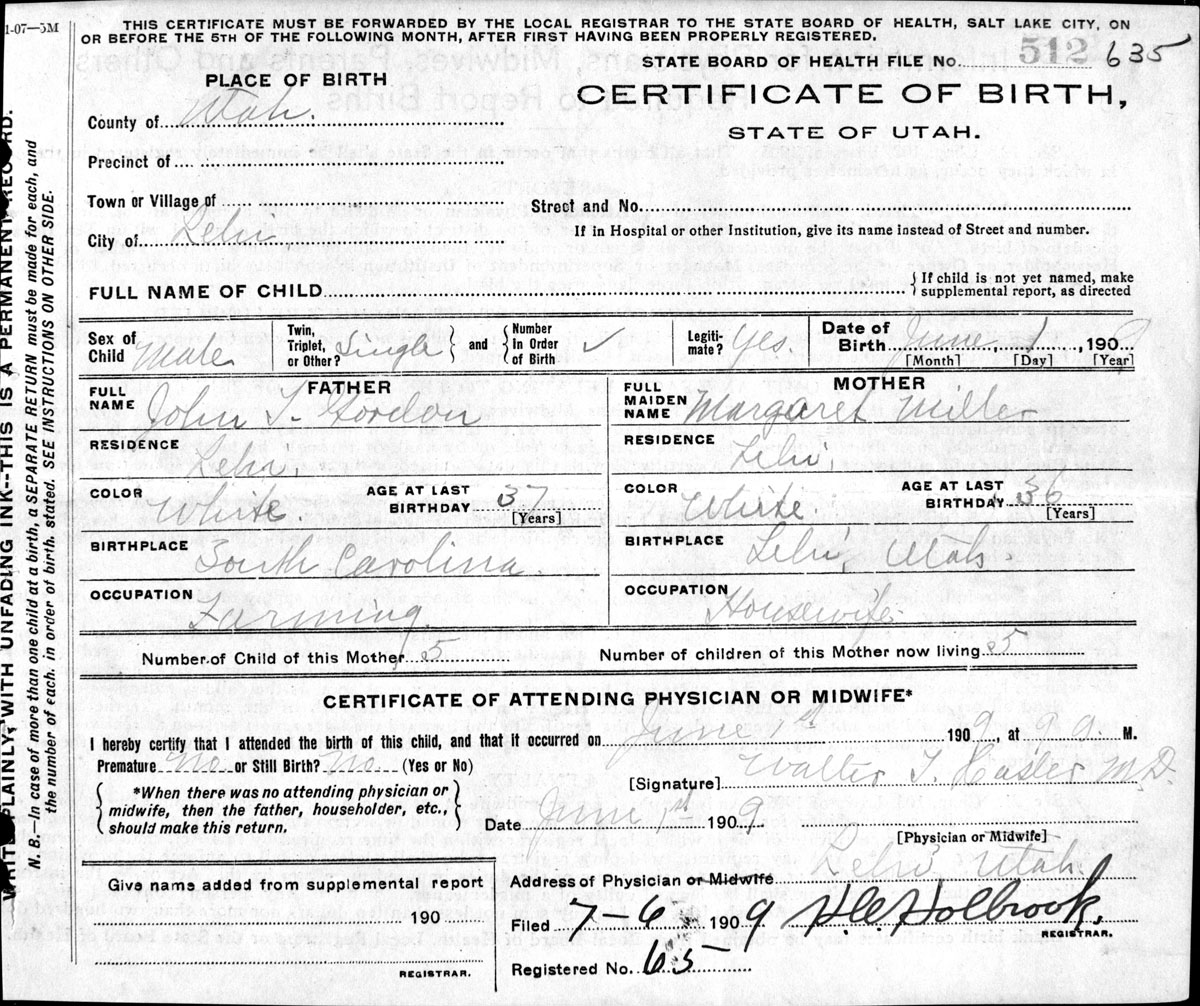 1-07—5M
THIS CERTIFICATE MUST BE FORWARDED BY THE LOCAL REGISTRAR TO THE STATE BOARD OF HEALTH, SALT LAKE CITY, ON
OR BEFORE THE 5TH OF THE FOLLOWING MONTH, AFTER FIRST HAVING BEEN PROPERLY REGISTERED.
STATE BOARD OF HEALTH FILE No. 512 635
PLACE OF BIRTH
CERTIFICATE OF BIRTH,
STATE OF UTAH.
County of Utah.
Precinct of
Town or Village of
Street and No.
City of Lehi
If in Hospital or other Institution, give its name instead of Street and number.
FULL NAME OF CHILD
If child is not yet named, make
supplemental report, as directed
Sex of Child Male
Twin, Triplet, or Other? Single and Number In Order of Birth ✓
Legiti-mate? Yes
Date of Birth June 1, 1909
[Month] [Day] [Year]
FATHER
FULL NAME John T. Gordon
RESIDENCE Lehi
COLOR White. AGE AT LAST BIRTHDAY 37 [Years]
BIRTHPLACE South Carolina.
OCCUPATION Farming.
MOTHER
FULL MAIDEN NAME Margaret Miller
RESIDENCE Lehi,
COLOR White. AGE AT LAST BIRTHDAY 36 [Years]
BIRTHPLACE Lehi, Utah
OCCUPATION Housewife.
Number of Child of this Mother 5 Number of children of this Mother now living 5
CERTIFICATE OF ATTENDING PHYSICIAN OR MIDWIFE*
I hereby certify that I attended the birth of this child, and that it occurred on June 1st 1909, at 9 a. M.
Premature No or Still Birth? No. (Yes or No)
[Signature] Walter T. Hasler M.D.
*When there was no attending physician or
midwife, then the father, householder, etc.,
should make this return.
Date June 1st 1909
[Physician or Midwife]
Address of Physician or Midwife Lehi, Utah.
Give name added from supplemental report
190
REGISTRAR.
Filed 7-6 1909 H.C. Holbrook.
REGISTRAR.
Registered No. 65
WRITE PLAINLY, WITH UNFADING INK--THIS IS A PERMANENT RECORD.
N. B.—In case of more than one child at a birth, a SEPARATE RETURN must be made for each, and
the number of each, in order of birth, stated. SEE INSTRUCTIONS ON OTHER SIDE.